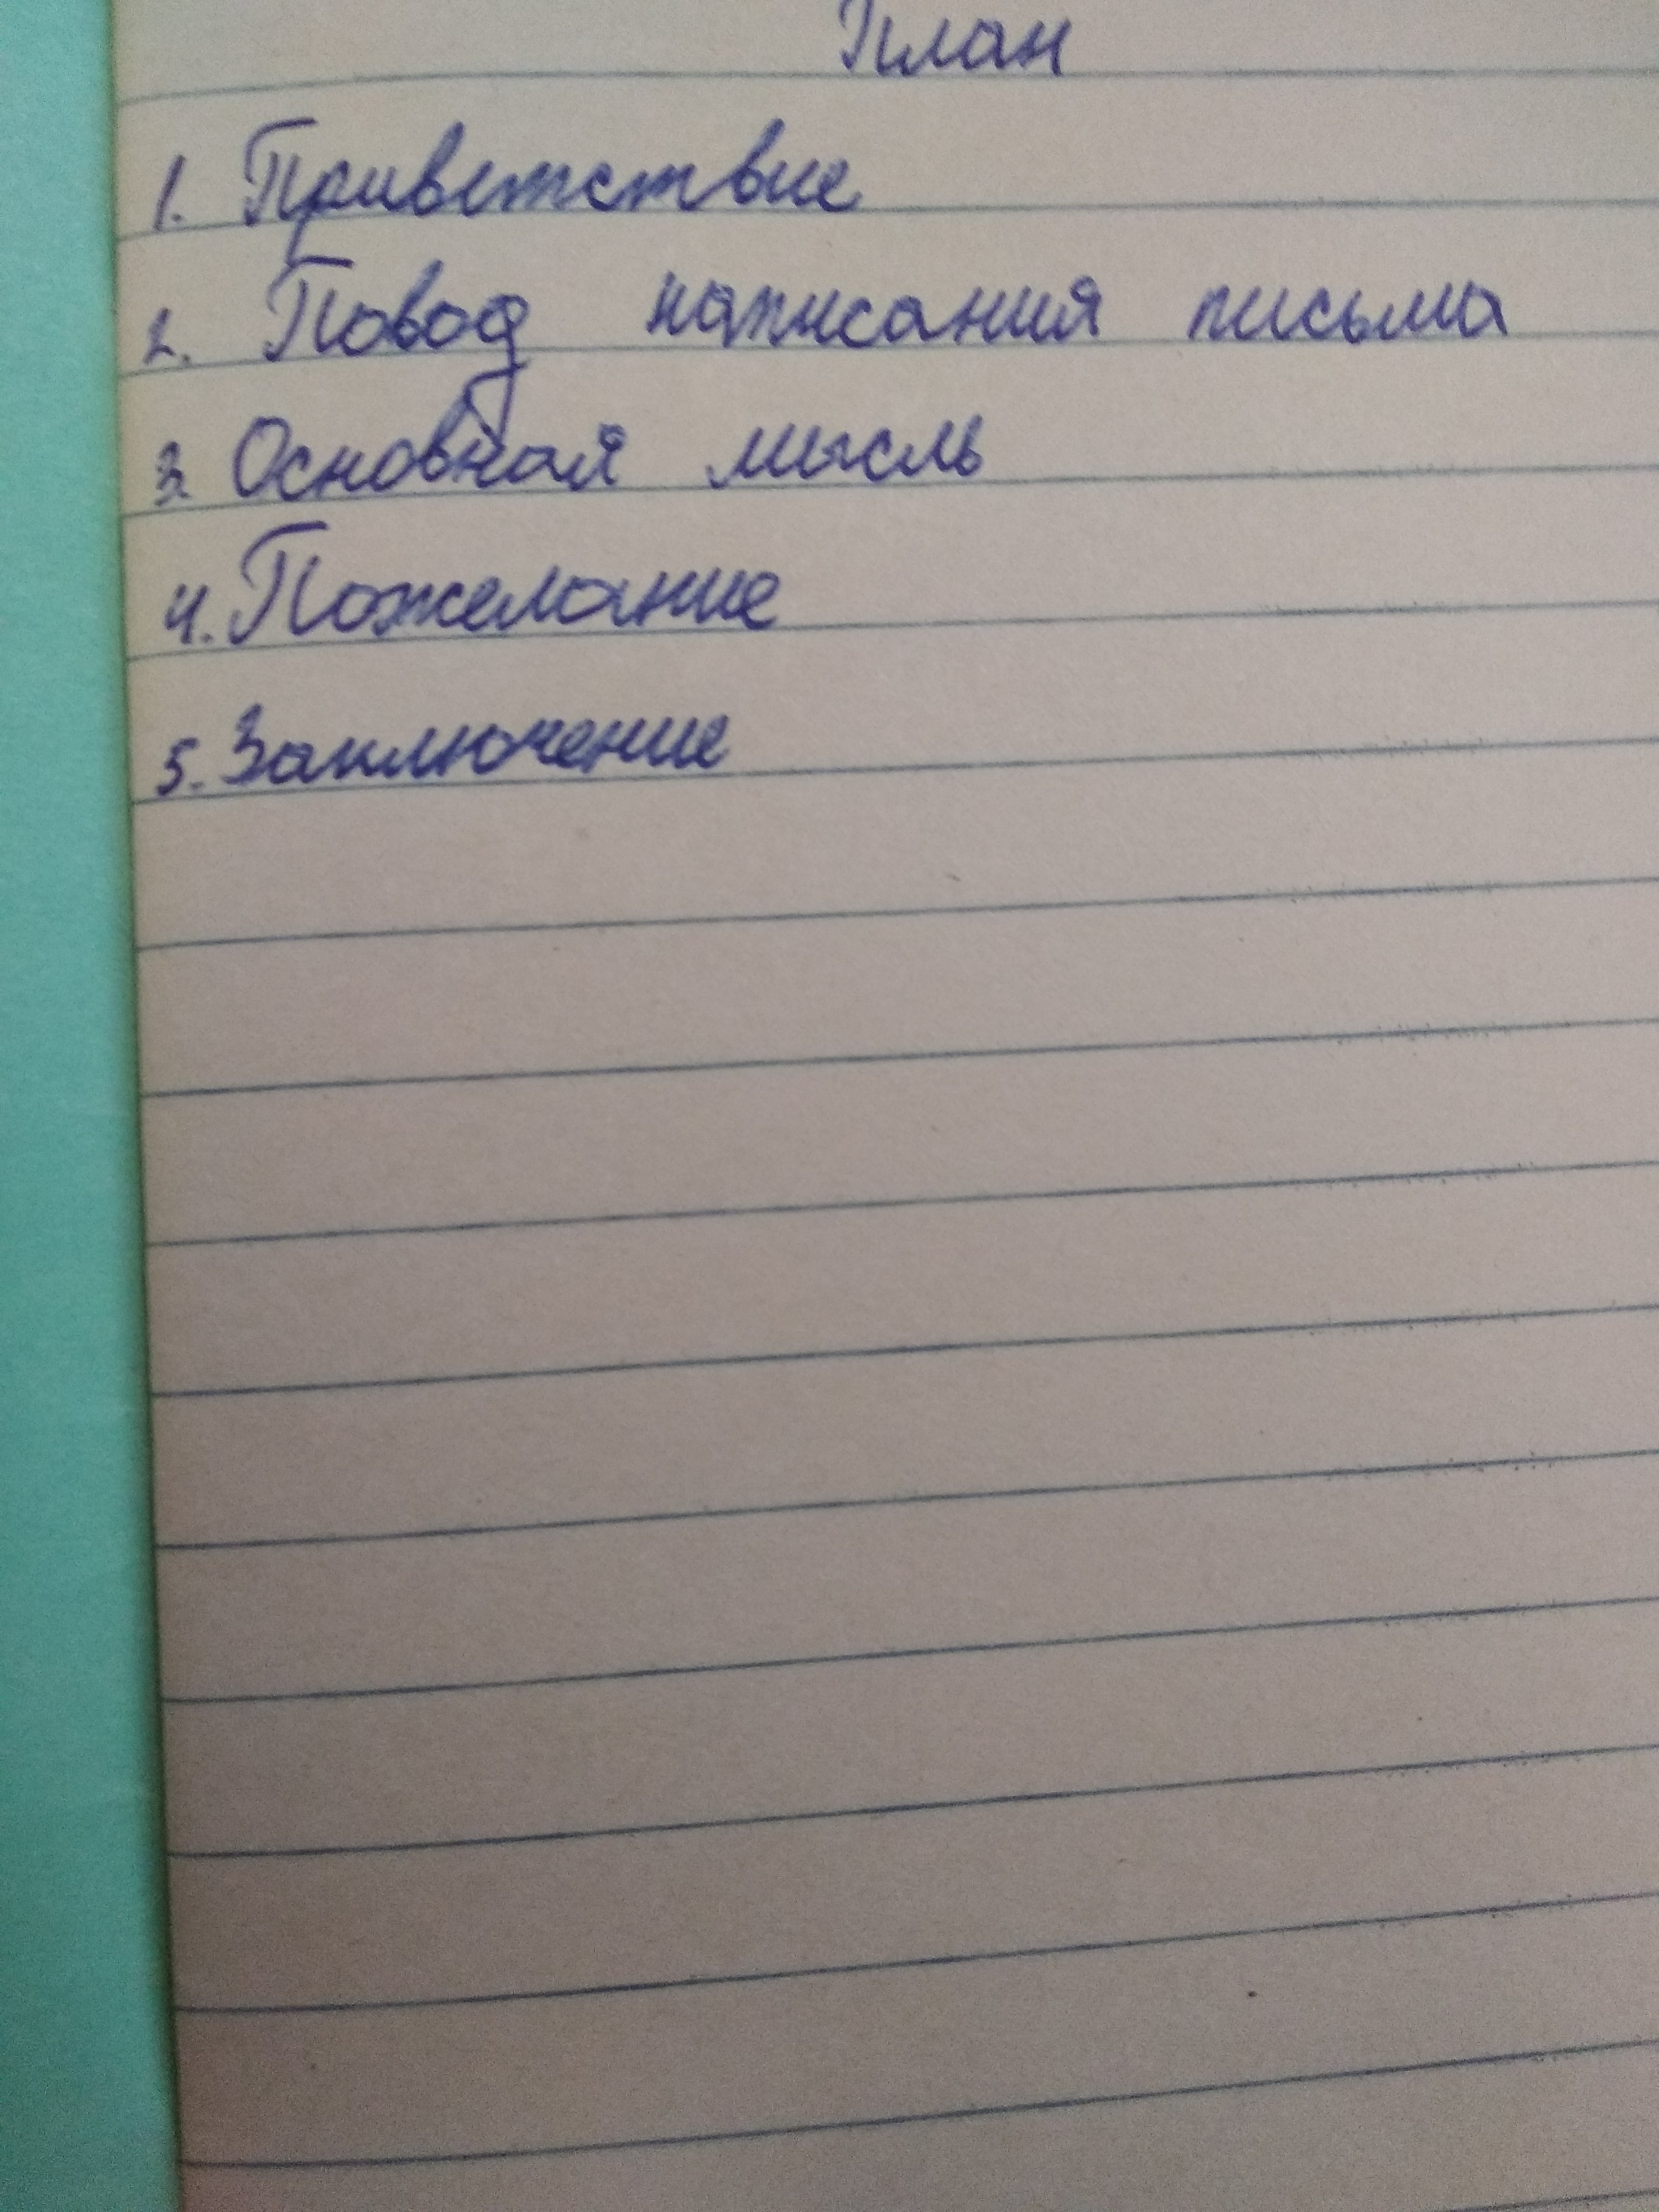 План
1. Приветствие
2. Повод написания письма
3. Основная мысль
4. Пожелание
5. Заключение